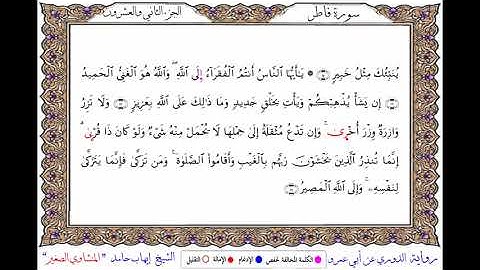 سورة فاطر
الجزء الثاني والعشرون
يُنَبِّئُكَ مِثْلُ خَبِيرٍ ۞ يَٰٓأَيُّهَا النَّاسُ أَنتُمُ الْفُقَرَآءُ إِلَى اللَّهِ ۖ وَاللَّهُ هُوَ الْغَنِيُّ الْحَمِيدُ
إِن يَشَأْ يُذْهِبْكُمْ وَيَأْتِ بِخَلْقٍ جَدِيدٍ وَمَا ذَٰلِكَ عَلَى اللَّهِ بِعَزِيزٍ وَلَا تَزِرُ
وَازِرَةٌ وِزْرَ أُخْرَىٰ ۚ وَإِن تَدْعُ مُثْقَلَةٌ إِلَىٰ حِمْلِهَا لَا يُحْمَلْ مِنْهُ شَيْءٌ وَلَوْ كَانَ ذَا قُرْبَىٰ ۗ
إِنَّمَا تُنذِرُ الَّذِينَ يَخْشَوْنَ رَبَّهُم بِالْغَيْبِ وَأَقَامُوا الصَّلَوٰةَ ۚ وَمَن تَزَكَّىٰ فَإِنَّمَا يَتَزَكَّىٰ
لِنَفْسِهِ ۚ وَإِلَى اللَّهِ الْمَصِيرُ
رواية الدوري عن أبي عمرو
الكلمة المخالفة لحفص الإدغام الإمالة التقليل
الشيخ إيهاب حامد "المنشاوي الصغير"